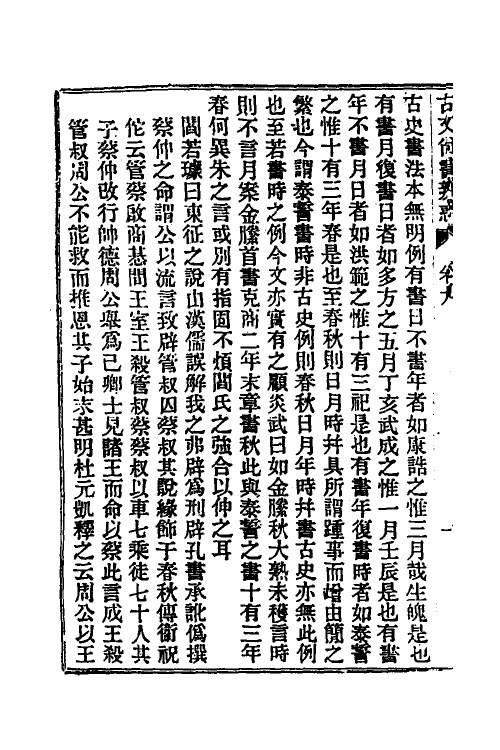 古文尚書冤詞 卷九 一
古史書法本無明例有書日不書年者如康誥之惟三月哉生魄是也
有書月復書日者如多方之五月丁亥武成之惟一月壬辰是也有書
年不書月日者如洪範之惟十有三祀是也有書年復書時者如泰誓
之惟十有三年春是也至春秋則日月時并具所謂踵事而增由簡之
繁也今謂泰誓書時非古史例則春秋日月年時并書古史亦無此例
也至若書時之例今文亦實有之顧炎武曰如金縢秋大熟未穫言時
則不言月案金縢首書克商二年末章書秋此與泰誓之書十有三年
春何異朱之言或別有指固不煩閻氏之強合以仲之耳
閻若璩曰東征之說由漢儒誤解我之弗辟為刑辟孔書承訛僞撰
蔡仲之命謂公以流言致辟管叔囚蔡叔其說緣飾于春秋傳衛祝
佗云管蔡啟商惎間王室王殺管叔蔡蔡叔以車七乘徒七十人其
子蔡仲改行帥德周公舉為己卿士見諸王而命以蔡此言成王殺
管叔周公不能救而推恩其子始末甚明杜元凱釋之云周公以王